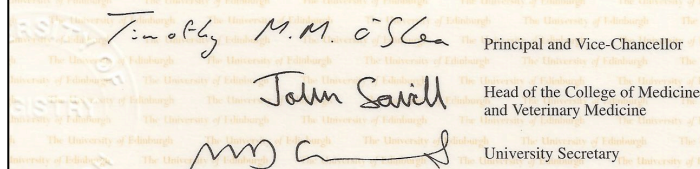 Timothy M.M. O'Shea Principal and Vice-Chancellor
John Savill Head of the College of Medicine
and Veterinary Medicine
University Secretary
The University of Edinburgh